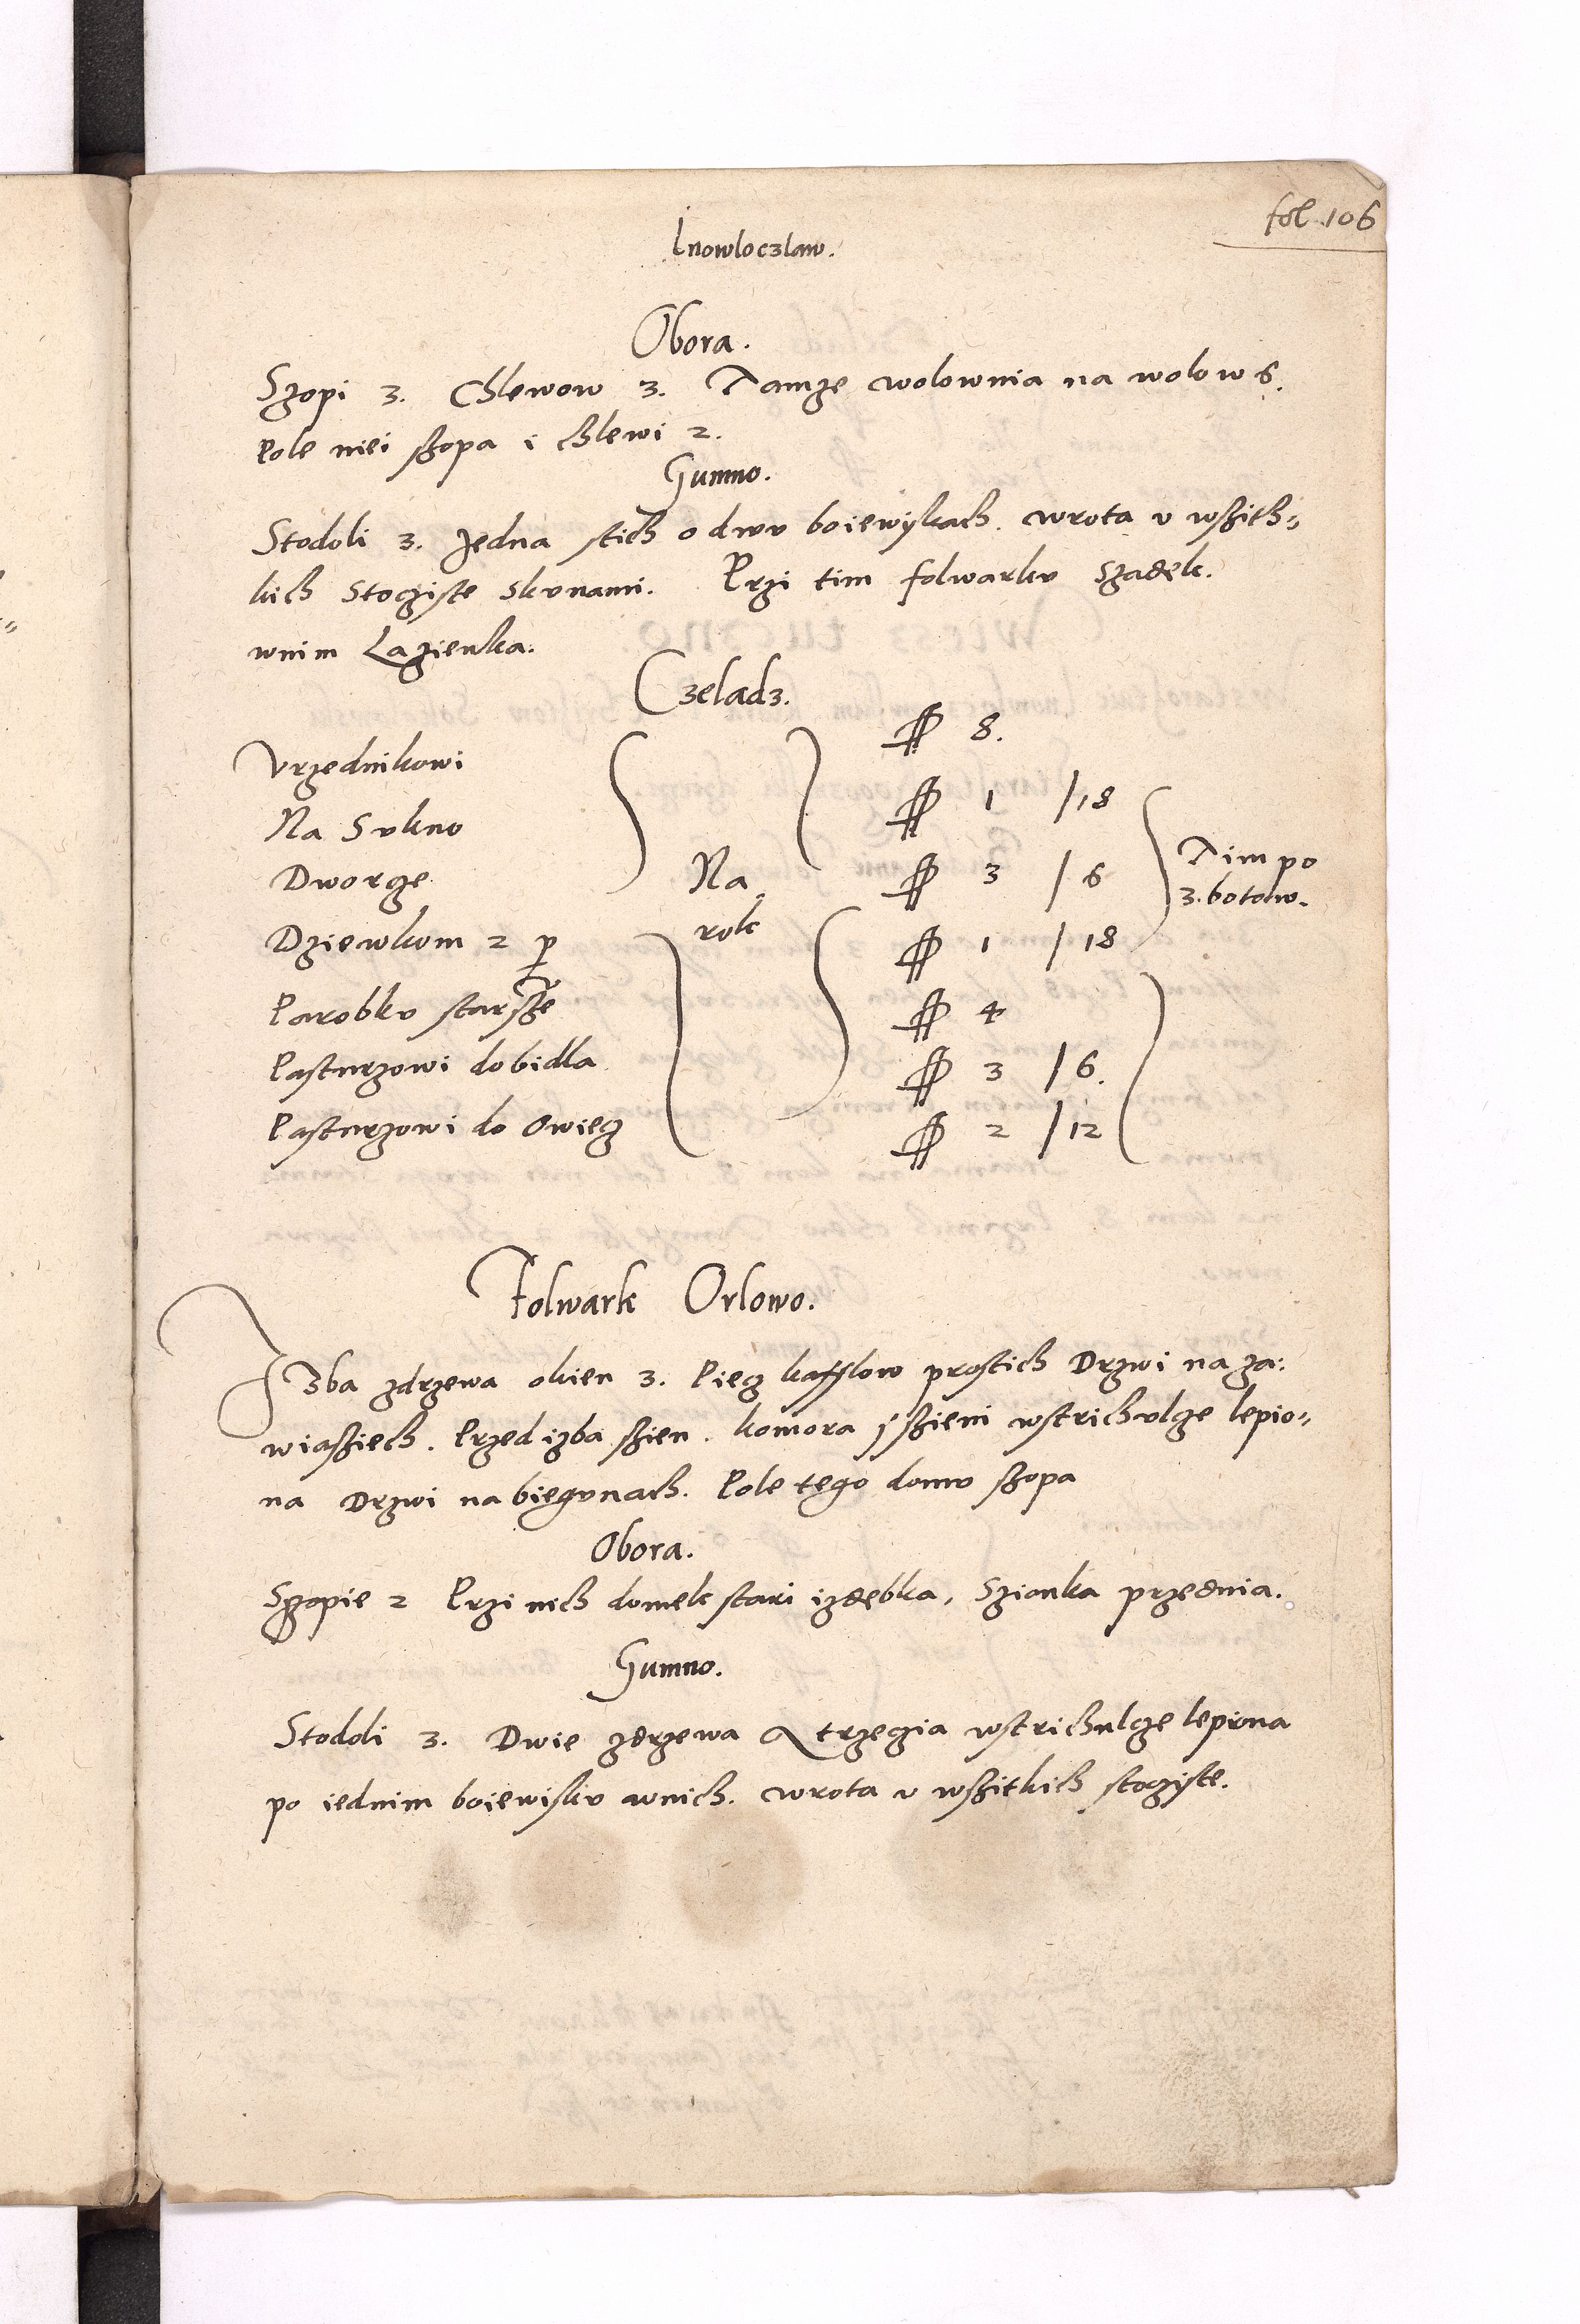 fol. 106
Inowloczlaw.
Obora.
Szopi 3. Chlewow 3. Tamze wolownia na wolow 6.
Pole niei szopa i chlewi 2.
Gumno.
Stodoli 3. Jedna stich o dwu boiewyskach. wrota v wszith=
kich Stoczyste skunami. Przi tim folwarku Szadek.
wnim Lazienka.
Czeladz.
Vrzednikowi ƒƒ 8.
Na Sukno ƒƒ 1 / 18
Dworze ƒƒ 3 / 6
Na rok
Tim po 3. botow.
Dziewkom 2 p ƒƒ 1 / 18
Parobku starsze ƒƒ 4
Pasturzowi do bidla ƒƒ 3 / 6.
Pasturzowi do Owiecz ƒƒ 2 / 12
Folwark Orlowo.
Izba zdrzewa okien 3. Piecz kafflow prostich Drzwi na za:
wiasziech. Przed izba szien. komora y szieni wstrichulcze lepio=
na Drzwi na biegunach. Pole tego domu szopa
Obora.
Szopie 2 Przi nich domek stari izdebka, Szionka przednia.
Gumno.
Stodoli 3. Dwie zdrzewa A trzeczia wstrichulcze lepiona
po iednim boiewisku wnich. wrota v wszitkich stoczyste.